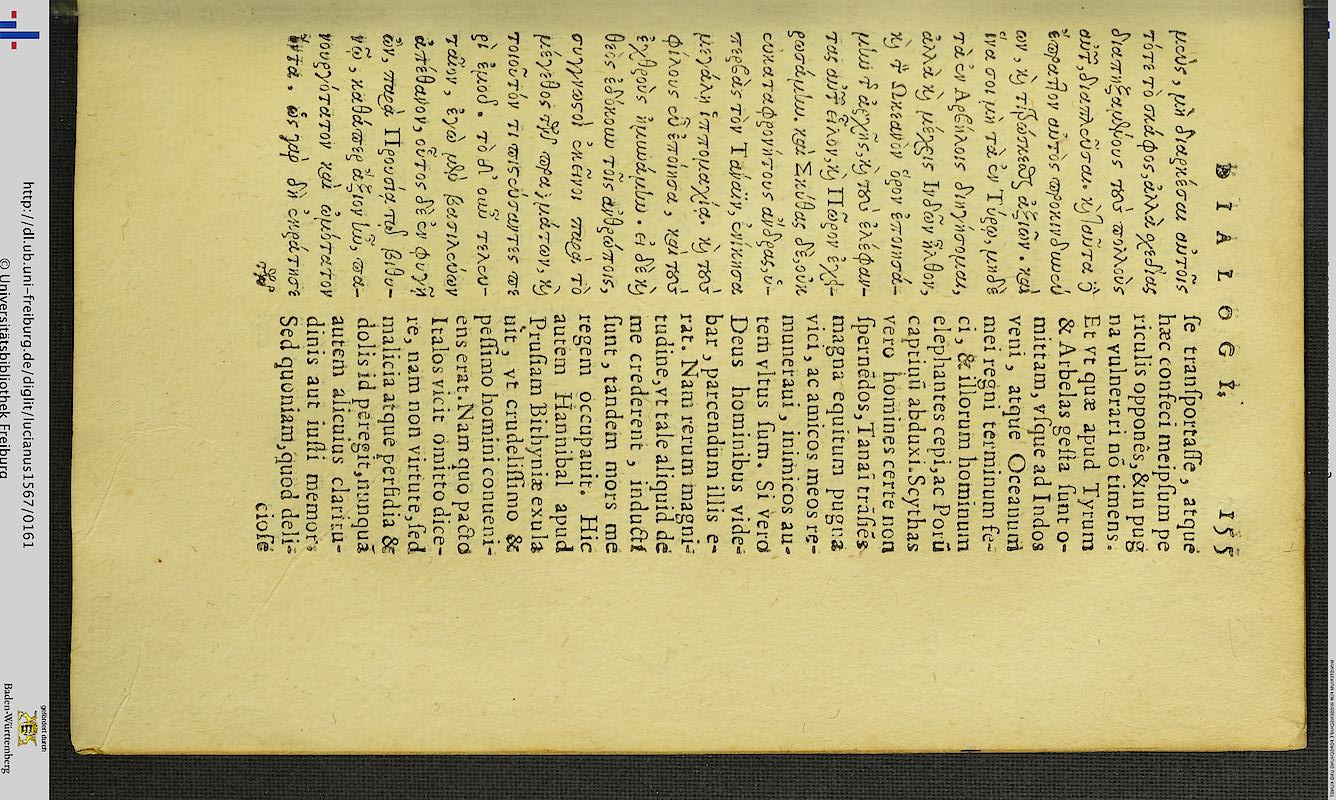 DIALOGI. 155
μοὺς, μὴ διαρκέσαι αὐτοῖς
τότε τὸ σκάφος, ἀλλὰ χεδίας
διαπηξαμένους τοὺς πολλοὺς
αὐτῶν, διαπλεῦσαι. κỳ ταῦτα ὁ
ἔπραττον αὐτὸς προκινδυνεύ
ων, κỳ τιτρώσκεσθαι ἀξιῶν. καὶ
ἵνα σοι μὴ τὰ ἐν Τύρῳ, μηδὲ
τὰ ἐν Αρβήλοις διηγήσομαι,
ἀλλὰ κỳ μέχρις Ινδῶν ἦλθον,
κỳ τὸν Ωκεανὸν ὅρον ἐποιησά-
μην τῆς ἀρχῆς, κỳ τοὺς ἐλέφαν-
τας αὐτῶν εἷλον, κỳ Πῶρον ἐχει-
ρωσάμην. καὶ Σκύθας δὲ, οὐκ
εὐκαταφρονήτους ἄνδρας, ὑ-
περβὰς τὸν Τάναϊν, ἐνίκησα
μεγάλῃ ἱππομαχίᾳ. κỳ τοὺς
φίλους εὖ ἐποίησα, καὶ τοὺς
ἐχθροὺς ἠμυνάμην. εἰ δὲ κỳ
θεὸς ἐδόκουν τοῖς ἀνθρώποις,
συγγνωστοὶ ἐκεῖνοι παρὰ τὸ
μέγεθος τῶν πραγμάτων, κỳ
τοιοῦτόν τι πιστεύσαντες πε
ρὶ ἐμοῦ. τὸ δ' οὖν τελευ-
ταῖον, ἐγὼ μὲν βασιλεύων
ἀπέθανον, οὗτος δὲ ἐν φυγῇ
ὢν, παρὰ Προυσίᾳ τῷ βιθυ-
νῷ, καθάπερ ἄξιον ἦν, πα-
νουργότατον καὶ ὠμότατον
ὄντα. ὡς γὰρ δὴ ἐκράτησε
τῶν
se transportasse, atque
hæc confeci meipsum pe
riculis opponēs, & in pug
na vulnerari nō timens.
Et vt quæ apud Tyrum
& Arbelas gesta sunt o-
mittam, vsque ad Indos
veni, atque Oceanum
mei regni terminum fe-
ci, & illorum hominum
elephantes cepi, ac Porū
captiuū abduxi. Scythas
vero homines certe non
spernēdos, Tanai trāsiēs
magna equitum pugna
vici, ac amicos meos re-
muneraui, inimicos au-
tem vltus sum. Si vero
Deus hominibus vide-
bar, parcendum illis e-
rat. Nam rerum magni-
tudine, vt tale aliquid de
me crederent, inducti
sunt, tandem mors me
regem occupauit. Hic
autem Hannibal apud
Prusiam Bithyniæ exula
uit, vt crudelissimo &
pessimo homini conueni-
ens erat. Nam quo pacto
Italos vicit omitto dice-
re, nam non virtute, sed
malicia atque perfidia &
dolis id peregit, nunquā
autem alicuius claritu-
dinis aut iusti memor.
Sed quoniam, quod deli-
ciose
http://dl.ub.uni-freiburg.de/diglit/lucianus1567/0161
© Universitätsbibliothek Freiburg
gefördert durch
Baden-Württemberg